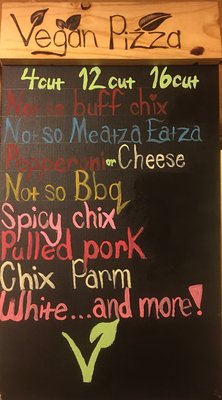 Vegan Pizza
4cut 12 cut 16cut
Not so buff chix
Not so Meatza Eatza
Pepperoni or Cheese
Not so Bbq
Spicy chix
Pulled porK
Chix Parm
White...and more!